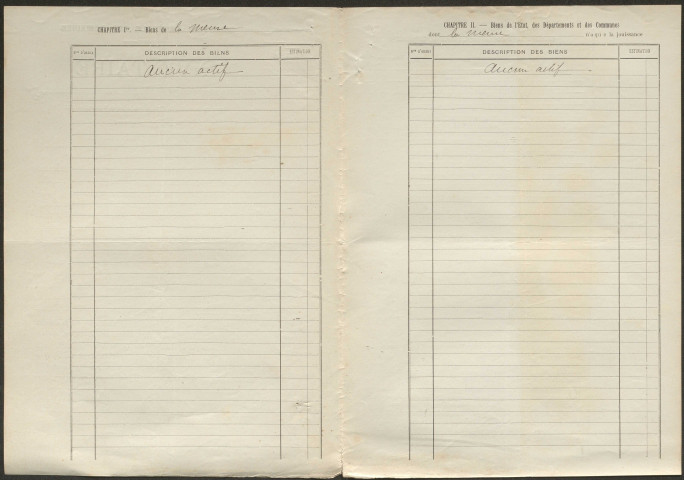 CHAPITRE Ier. — Biens de la mense
Nos d'ordre DESCRIPTION DES BIENS ESTIMATION
Aucun actif
CHAPITRE II. — Biens de l'État, des Départements et des Communes
dont la mense n'a qu'e la jouissance
Nos d'ordre DESCRIPTION DES BIENS ESTIMATION
Aucun actif